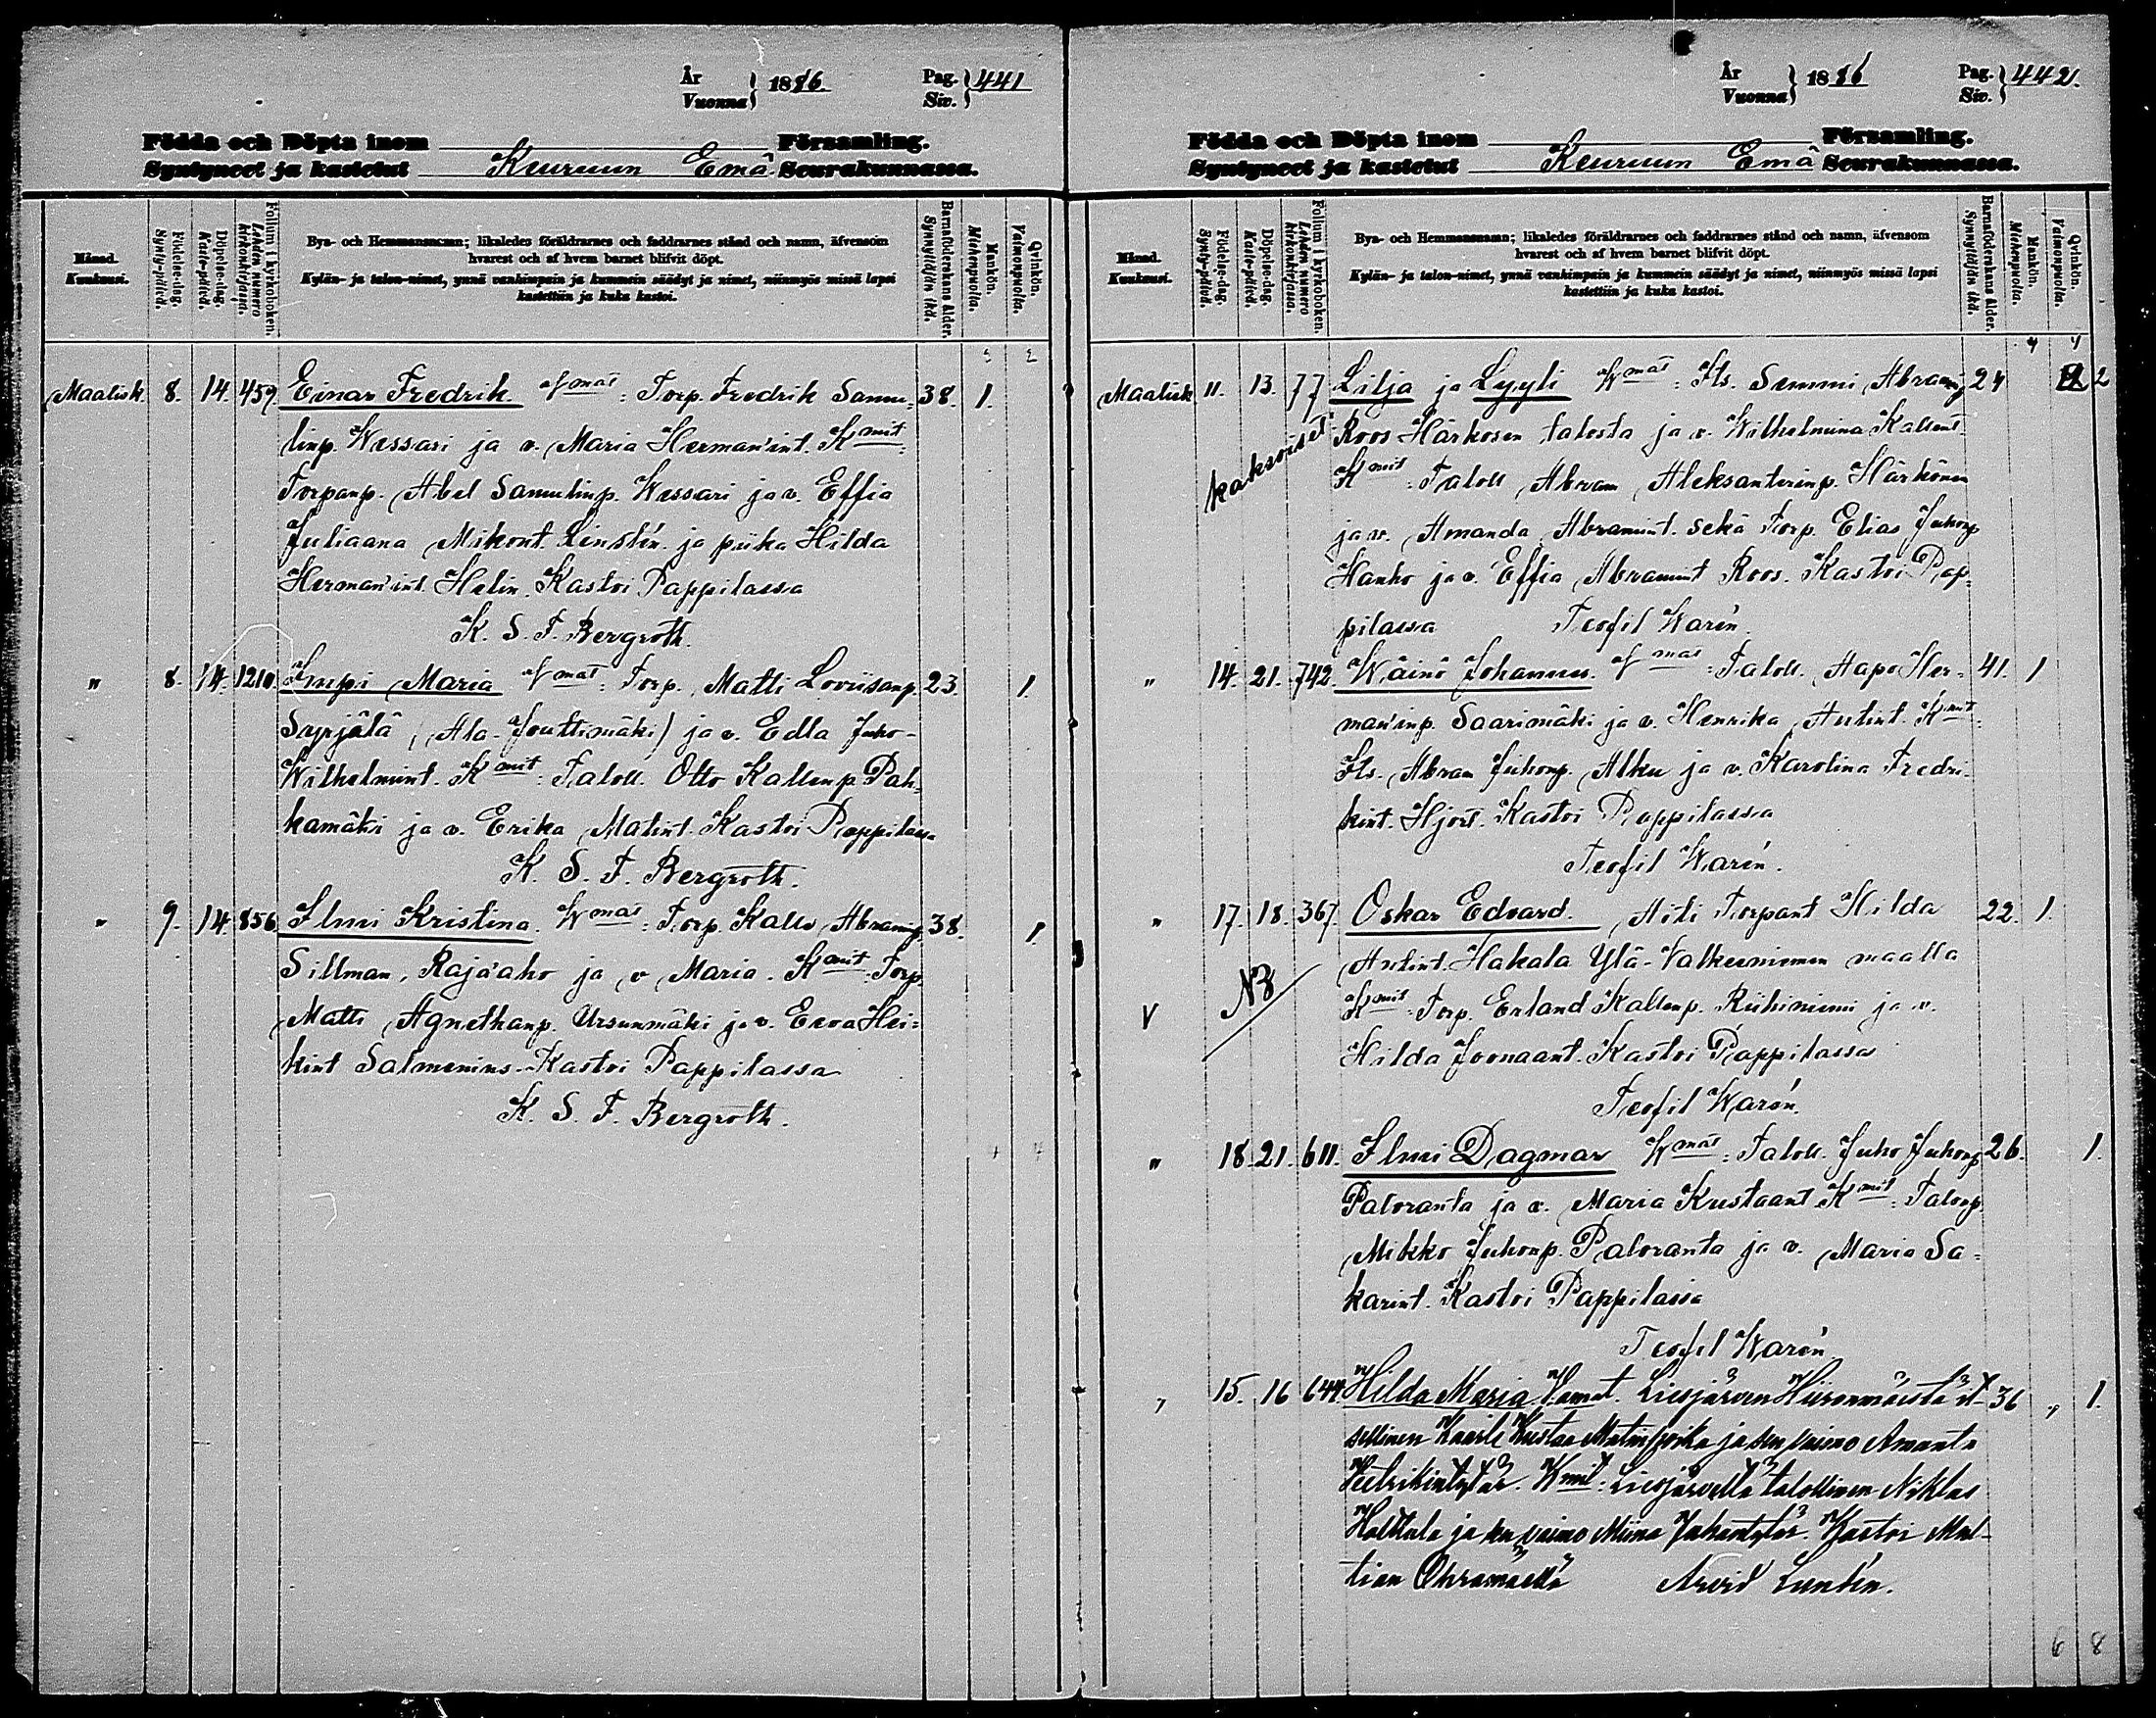 År Vuonna } 1886. Pag. Siv. } 441
Födda och Döpta inom Församling.
Syntyneet ja kastetut Keuruun Emä Seurakunnassa.
Månad. Kuukausi.
Födelse-dag. Synty-päivä.
Döpelse-dag. Kaste-päivä.
Folium i kyrkoboken. Lehden numero kirkonkirjassa.
Bya- och Hemmansnamn; likaledes föräldrarnes och faddrarnes stånd och namn, äfvensom
hvarest och af hvem barnet blifvit döpt.
Kylän- ja talon-nimet, ynnä vanhimpain ja kummein säädyt ja nimet, niinmyös missä lapsi
kastettiin ja kuka kastoi.
Barnaföderskans ålder. Synnyttäjän ikä.
Mankön. Miehenpuolia.
Qvinkön. Vaimonpuolia.
Maalisk. 8. 14. 459. Einar Fredrik Wmat: Torp. Fredrik Samu- 38. 1.
linp. Wessari ja v. Maria Herman'int. Kmit:
Torpanp. Abel Samulinp. Wessari ja v. Effia
Juliaana Mikont. Linstén ja piika Hilda
Herman'int. Helin. Kastoi Pappilassa
K. S. F. Bergroth.
" 8. 14. 1210. Impi Maria Wmat: Torp. Matti Loviisanp. 23. 1.
Syrjälä, (Ala-Jouttimäki) ja v. Edla Juho-
Wilhelmint. Kmit: Taloll. Otto Kallenp. Pah-
kamäki ja v. Erika Matint. Kastoi Pappilassa
K. S. F. Bergroth.
" 9. 14. 856. Ilmi Kristina. Wmat: Torp. Kalle Abramip. 38. 1.
Sillman, Raja'aho ja v. Maria. Kmit: Torp.
Matti Agnethanp. Ursunmäki ja v. Eeva Hei-
kint Salmenius. Kastoi Pappilassa
K. S. F. Bergroth.
År Vuonna } 1886 Pag. Siv. } 442.
Födda och Döpta inom Församling.
Syntyneet ja kastetut Keuruun Emä Seurakunnassa.
Månad. Kuukausi.
Födelse-dag. Synty-päivä.
Döpelse-dag. Kaste-päivä.
Folium i kyrkoboken. Lehden numero kirkonkirjassa.
Bya- och Hemmansnamn; likaledes föräldrarnes och faddrarnes stånd och namn, äfvensom
hvarest och af hvem barnet blifvit döpt.
Kylän- ja talon-nimet, ynnä vanhimpain ja kummein säädyt ja nimet, niinmyös missä lapsi
kastettiin ja kuka kastoi.
Barnaföderskans ålder. Synnyttäjän ikä.
Mankön. Miehenpuolia.
Qvinkön. Vaimonpuolia.
4 4
Maalisk 11. 13. 77 Lilja ja Lyyli Wmat: Its. Semmi Abramip 24 2
kaksoiset Roos Härkösen talosta ja v. Wilhelmiina Kallent.
Kmit: Taloll Abram Aleksanterinp. Härkönen
ja v. Amanda Abramint. sekä Torp. Elias Juhonp
Hanho ja v. Effia Abramint Roos. Kastoi Pap-
pilassa Teofil Warén.
" 14. 21. 742. Wäinö Johannes. Wmat: Taloll. Aapo Her- 41. 1
man'inp. Saarimäki ja v. Henrika Antint. Kmit:
Its. Abram Juhonp. Alku ja v. Karolina Fredri-
kint. Hjort. Kastoi Pappilassa
Teofil Warén.
" 17. 18. 367. Oskar Edvard. Äiti Torpant Hilda 22. 1.
Antint. Hakala Ylä-Valkeeniemen maalla
V NB Kmit: Torp. Erland Kallenp. Riihiniemi ja v.
Hilda Joonaant. Kastoi Pappilassa
Teofil Warén.
" 18. 21. 611. Ilmi Dagmar Wmat: Taloll. Juho Juhonp 26. 1.
Paloranta ja v. Maria Kustaant Kmit: Talonp.
Mikko Juhonp. Paloranta ja v. Maria Sa-
karint. Kastoi Pappilassa
Teofil Warén
" 15. 16 644. Hilda Maria Vamat. Liesjärven Hiironmäestä it- 36 " 1.
sellinen Kaarle Kustaa Matinpoika ja sen vaimo Amanta
Kmit: Liesjärveltä talollinen Niklas
ja sen vaimo Miina Kastoi Mul-
tian Arvid Lundén.
6 8